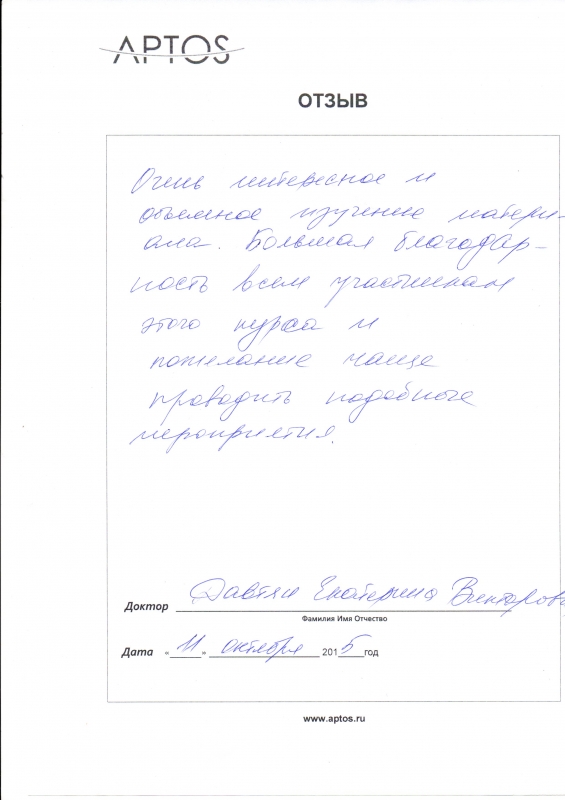 APTOS
ОТЗЫВ
Очень интересное и
объемное изучение матери-
ала. Большая благодар-
ность всем участникам
этого курса и
пожелание чаще
проводить подобные
мероприятия.
Доктор Давтян Екатерина Викторовн
Фамилия Имя Отчество
Дата «11» октября 2015 год
www.aptos.ru